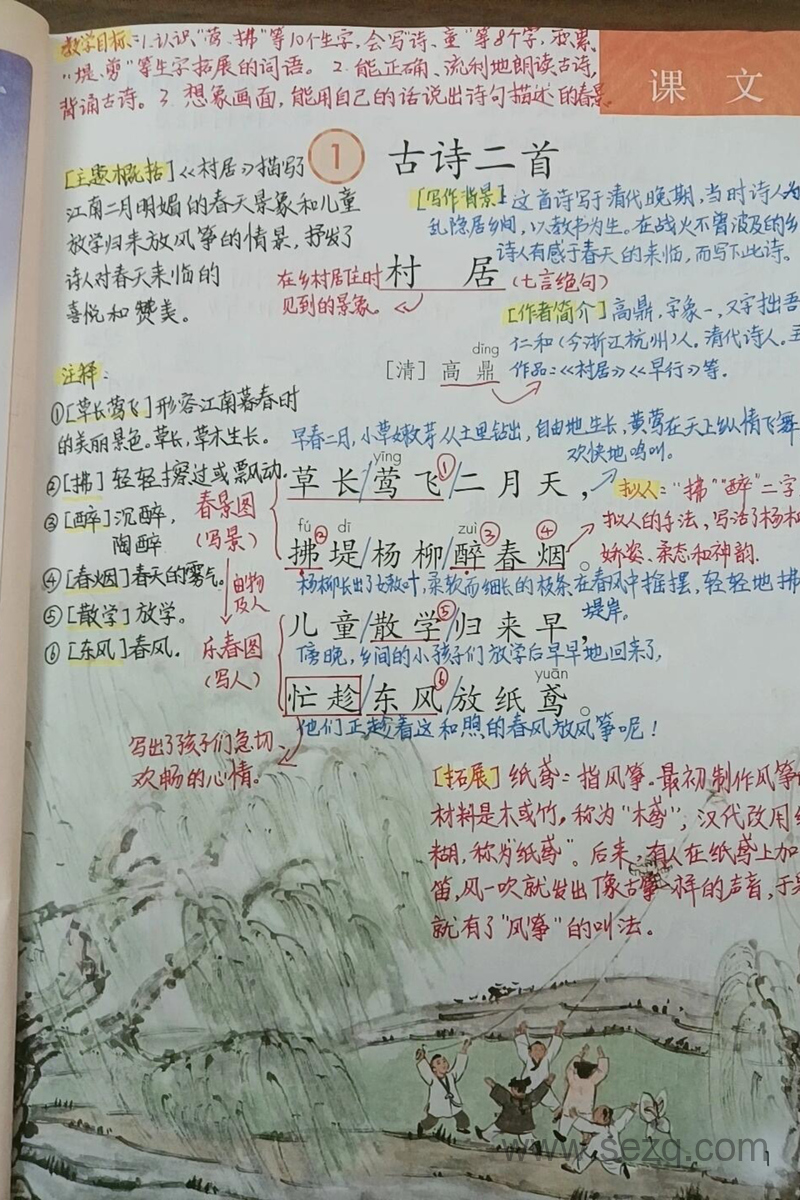 教学目标:1.认识“莺、拂”等10个生字,会写“诗、童”等8个字,积累
“堤、剪”等生字拓展的词语。2.能正确、流利地朗读古诗,
背诵古诗。3.想象画面,能用自己的话说出诗句描述的春景
课 文
1 古诗二首
[主题概括]《村居》描写
江南二月明媚的春天景象和儿童
放学归来放风筝的情景,抒发了
诗人对春天来临的
喜悦和赞美。
[写作背景]:这首诗写于清代晚期,当时诗人为
乱隐居乡间,以教书为生。在战火不曾波及的乡
诗人有感于春天的来临,而写下此诗。
在乡村居住时
见到的景象。
村 居 (七言绝句)
[作者简介]高鼎,字象一,又字拙吾
仁和(今浙江杭州)人。清代诗人。主
作品:《村居》《早行》等。
dǐng
[清] 高 鼎
注释:
①[草长莺飞]形容江南暮春时
的美丽景色。草长,草木生长。
②[拂]轻轻擦过或飘动.
③[醉]沉醉,
陶醉
④[春烟]春天的雾气。
⑤[散学]放学。
⑥[东风]春风.
早春二月,小草嫩芽从土里钻出,自由地生长,黄莺在天上纵情飞舞
欢快地鸣叫。
yīng
草长/莺飞①/二月天,
春景图
(写景)
由物
及人
乐春图
(写人)
拟人:“拂”“醉”二字
拟人的手法,写活了杨柳
娇姿、柔态和神韵.
fú dī zuì
拂②堤/杨柳/醉③春烟④。
杨柳长出了嫩叶,柔软而细长的枝条在春风中摇摆,轻轻地拂
堤岸。
儿童/散学⑤/归来早,
傍晚,乡间的小孩子们放学后早早地回来了,
yuān
忙趁/东风⑥/放纸鸢。
他们正趁着这和煦的春风放风筝呢!
写出了孩子们急切、
欢畅的心情。
[拓展]纸鸢:指风筝。最初制作风筝
材料是木或竹,称为“木鸢”,汉代改用
糊,称为“纸鸢”。后来,有人在纸鸢上加
笛,风一吹就发出像古筝一样的声音,于是
就有了“风筝”的叫法。
www.sezq.com
1